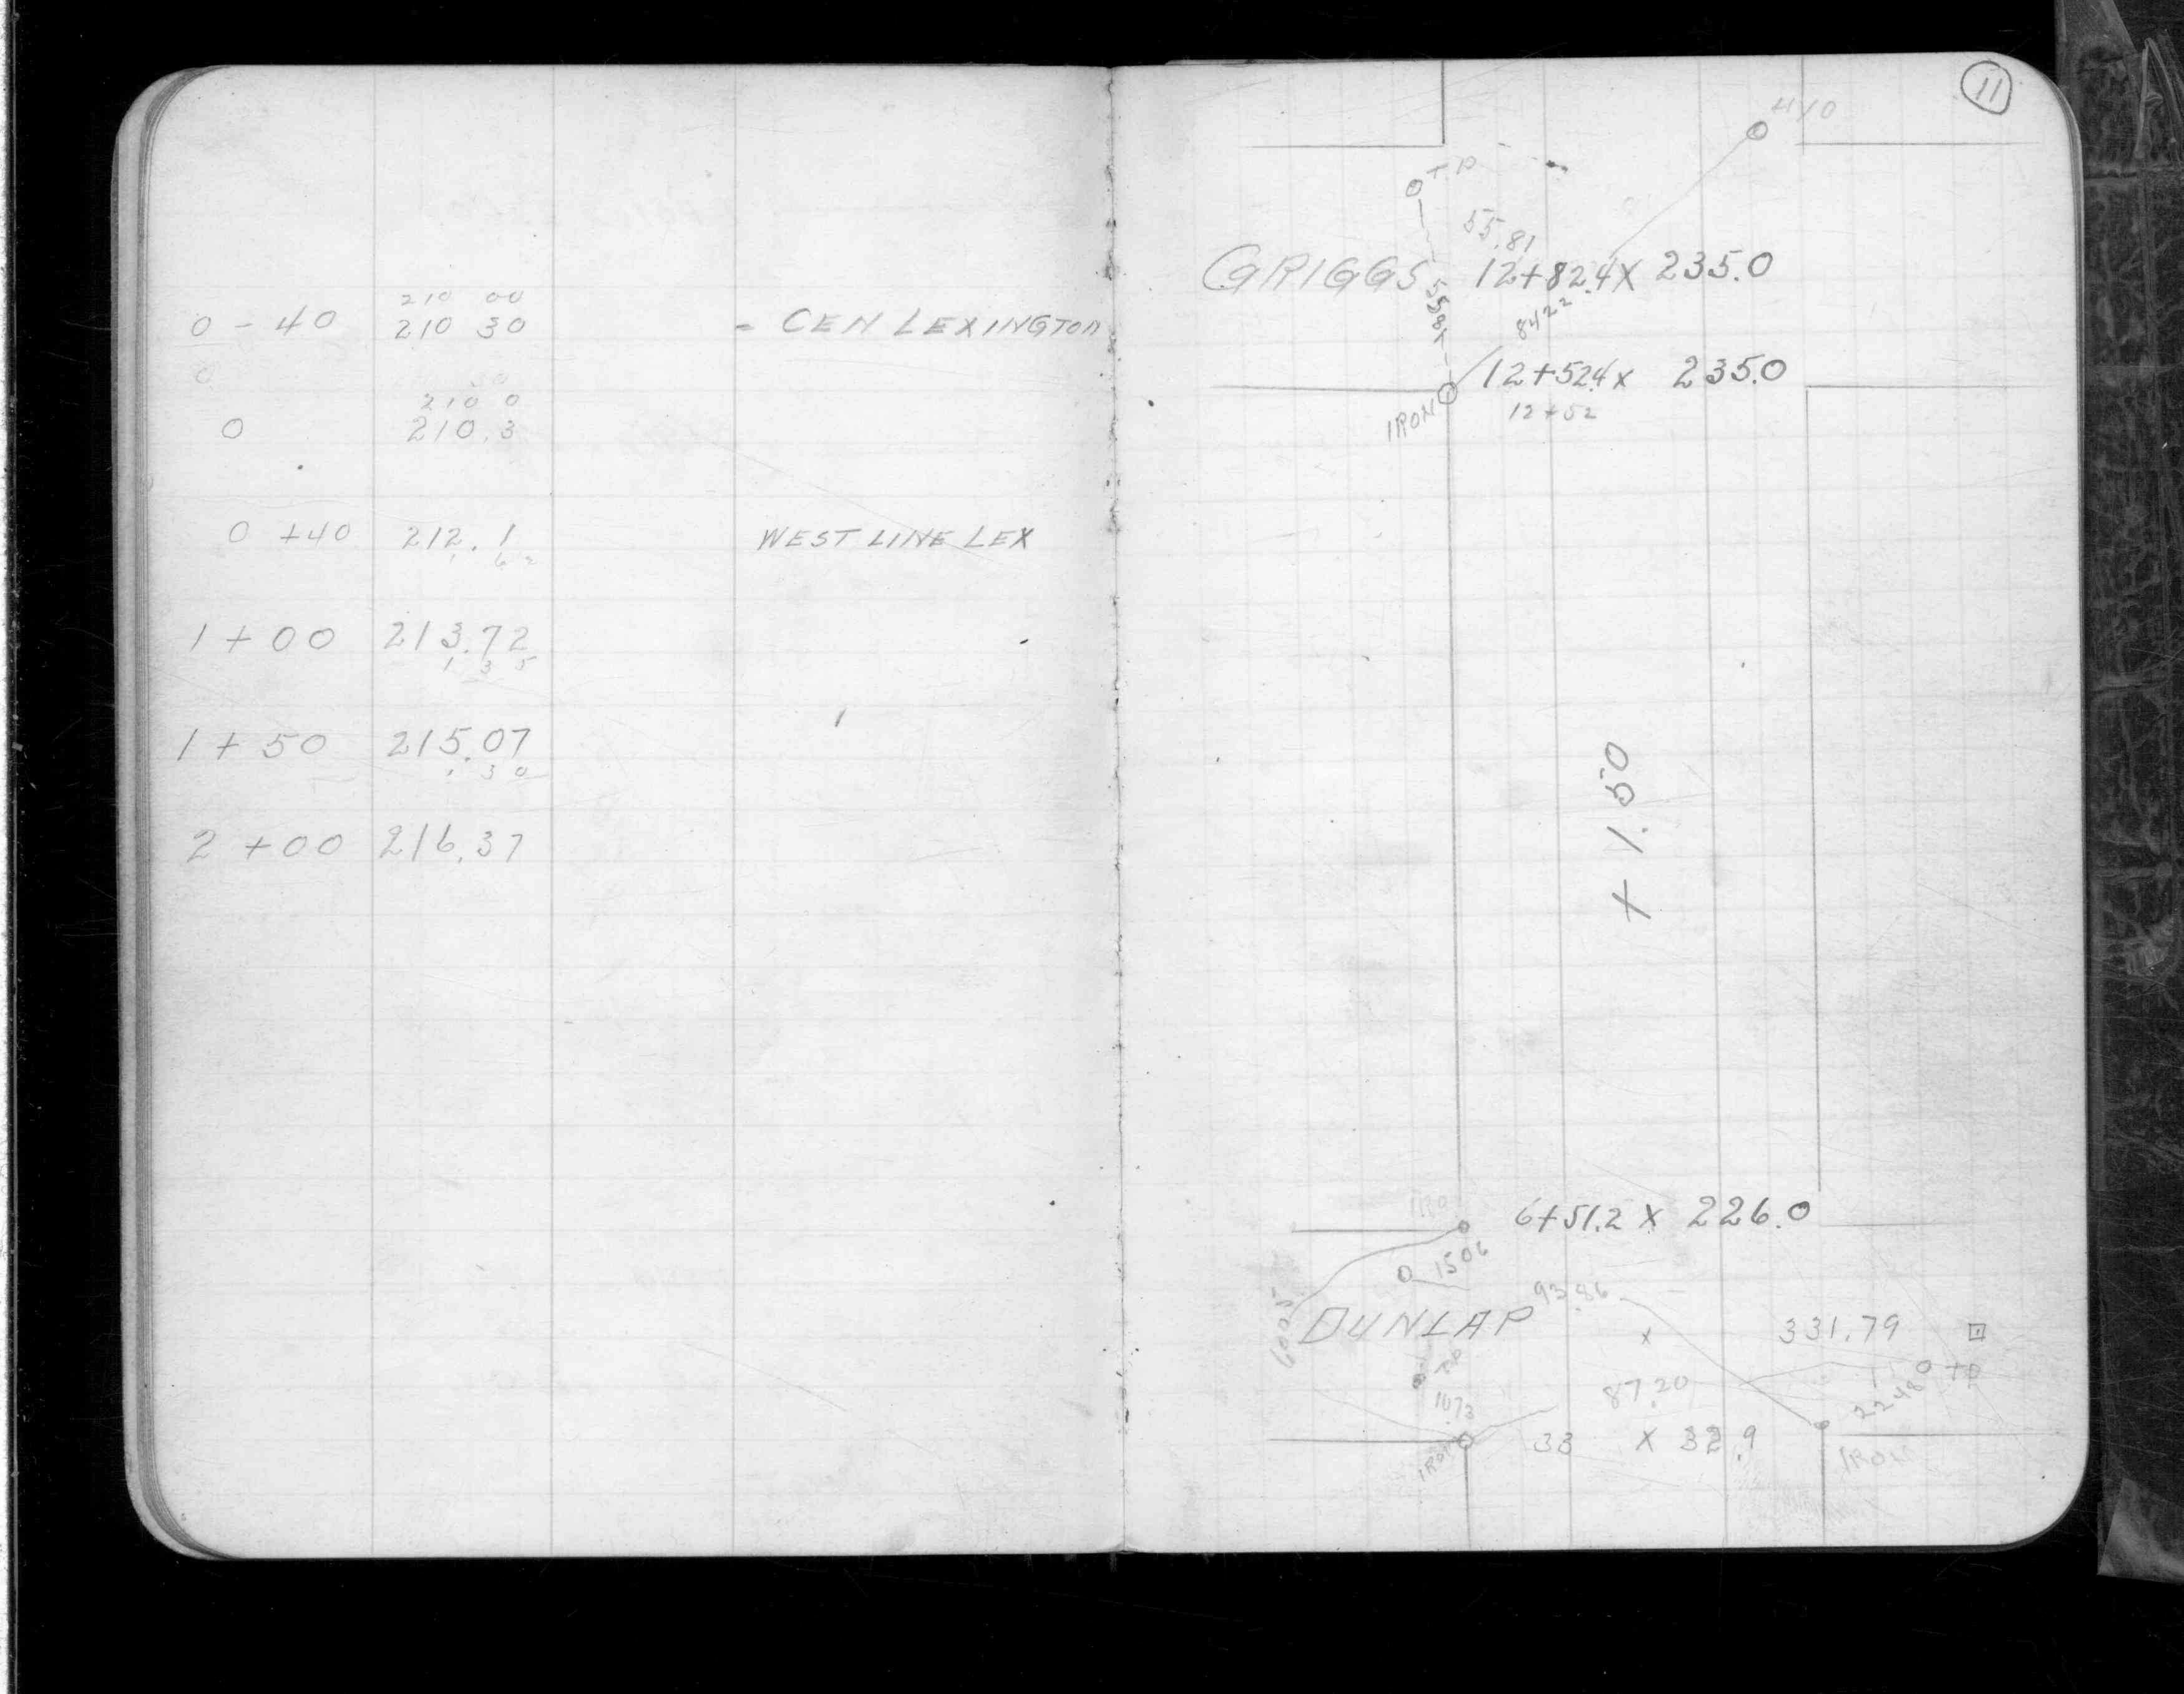 210 00
0 - 40 210 30 = CEN LEXINGTON
0
210 0
0 210.3
0 +40 212.1 WEST LINE LEX
1 6 2
1 + 00 213.72
1 3 5
1 + 50 215.07
1 3 0
2 + 00 216.37
11
T.P
55.81
GRIGGS 12+82.4 X 235.0
5587
8422
12+52.4 X 235.0
IRON 12+52
+ 1.50
6+51.2 X 226.0
1506
6025
DUNLAP 93.86
X 331.79
T.P
TP
87.20
22480
1073
33 X 32.9
IRON
IRON